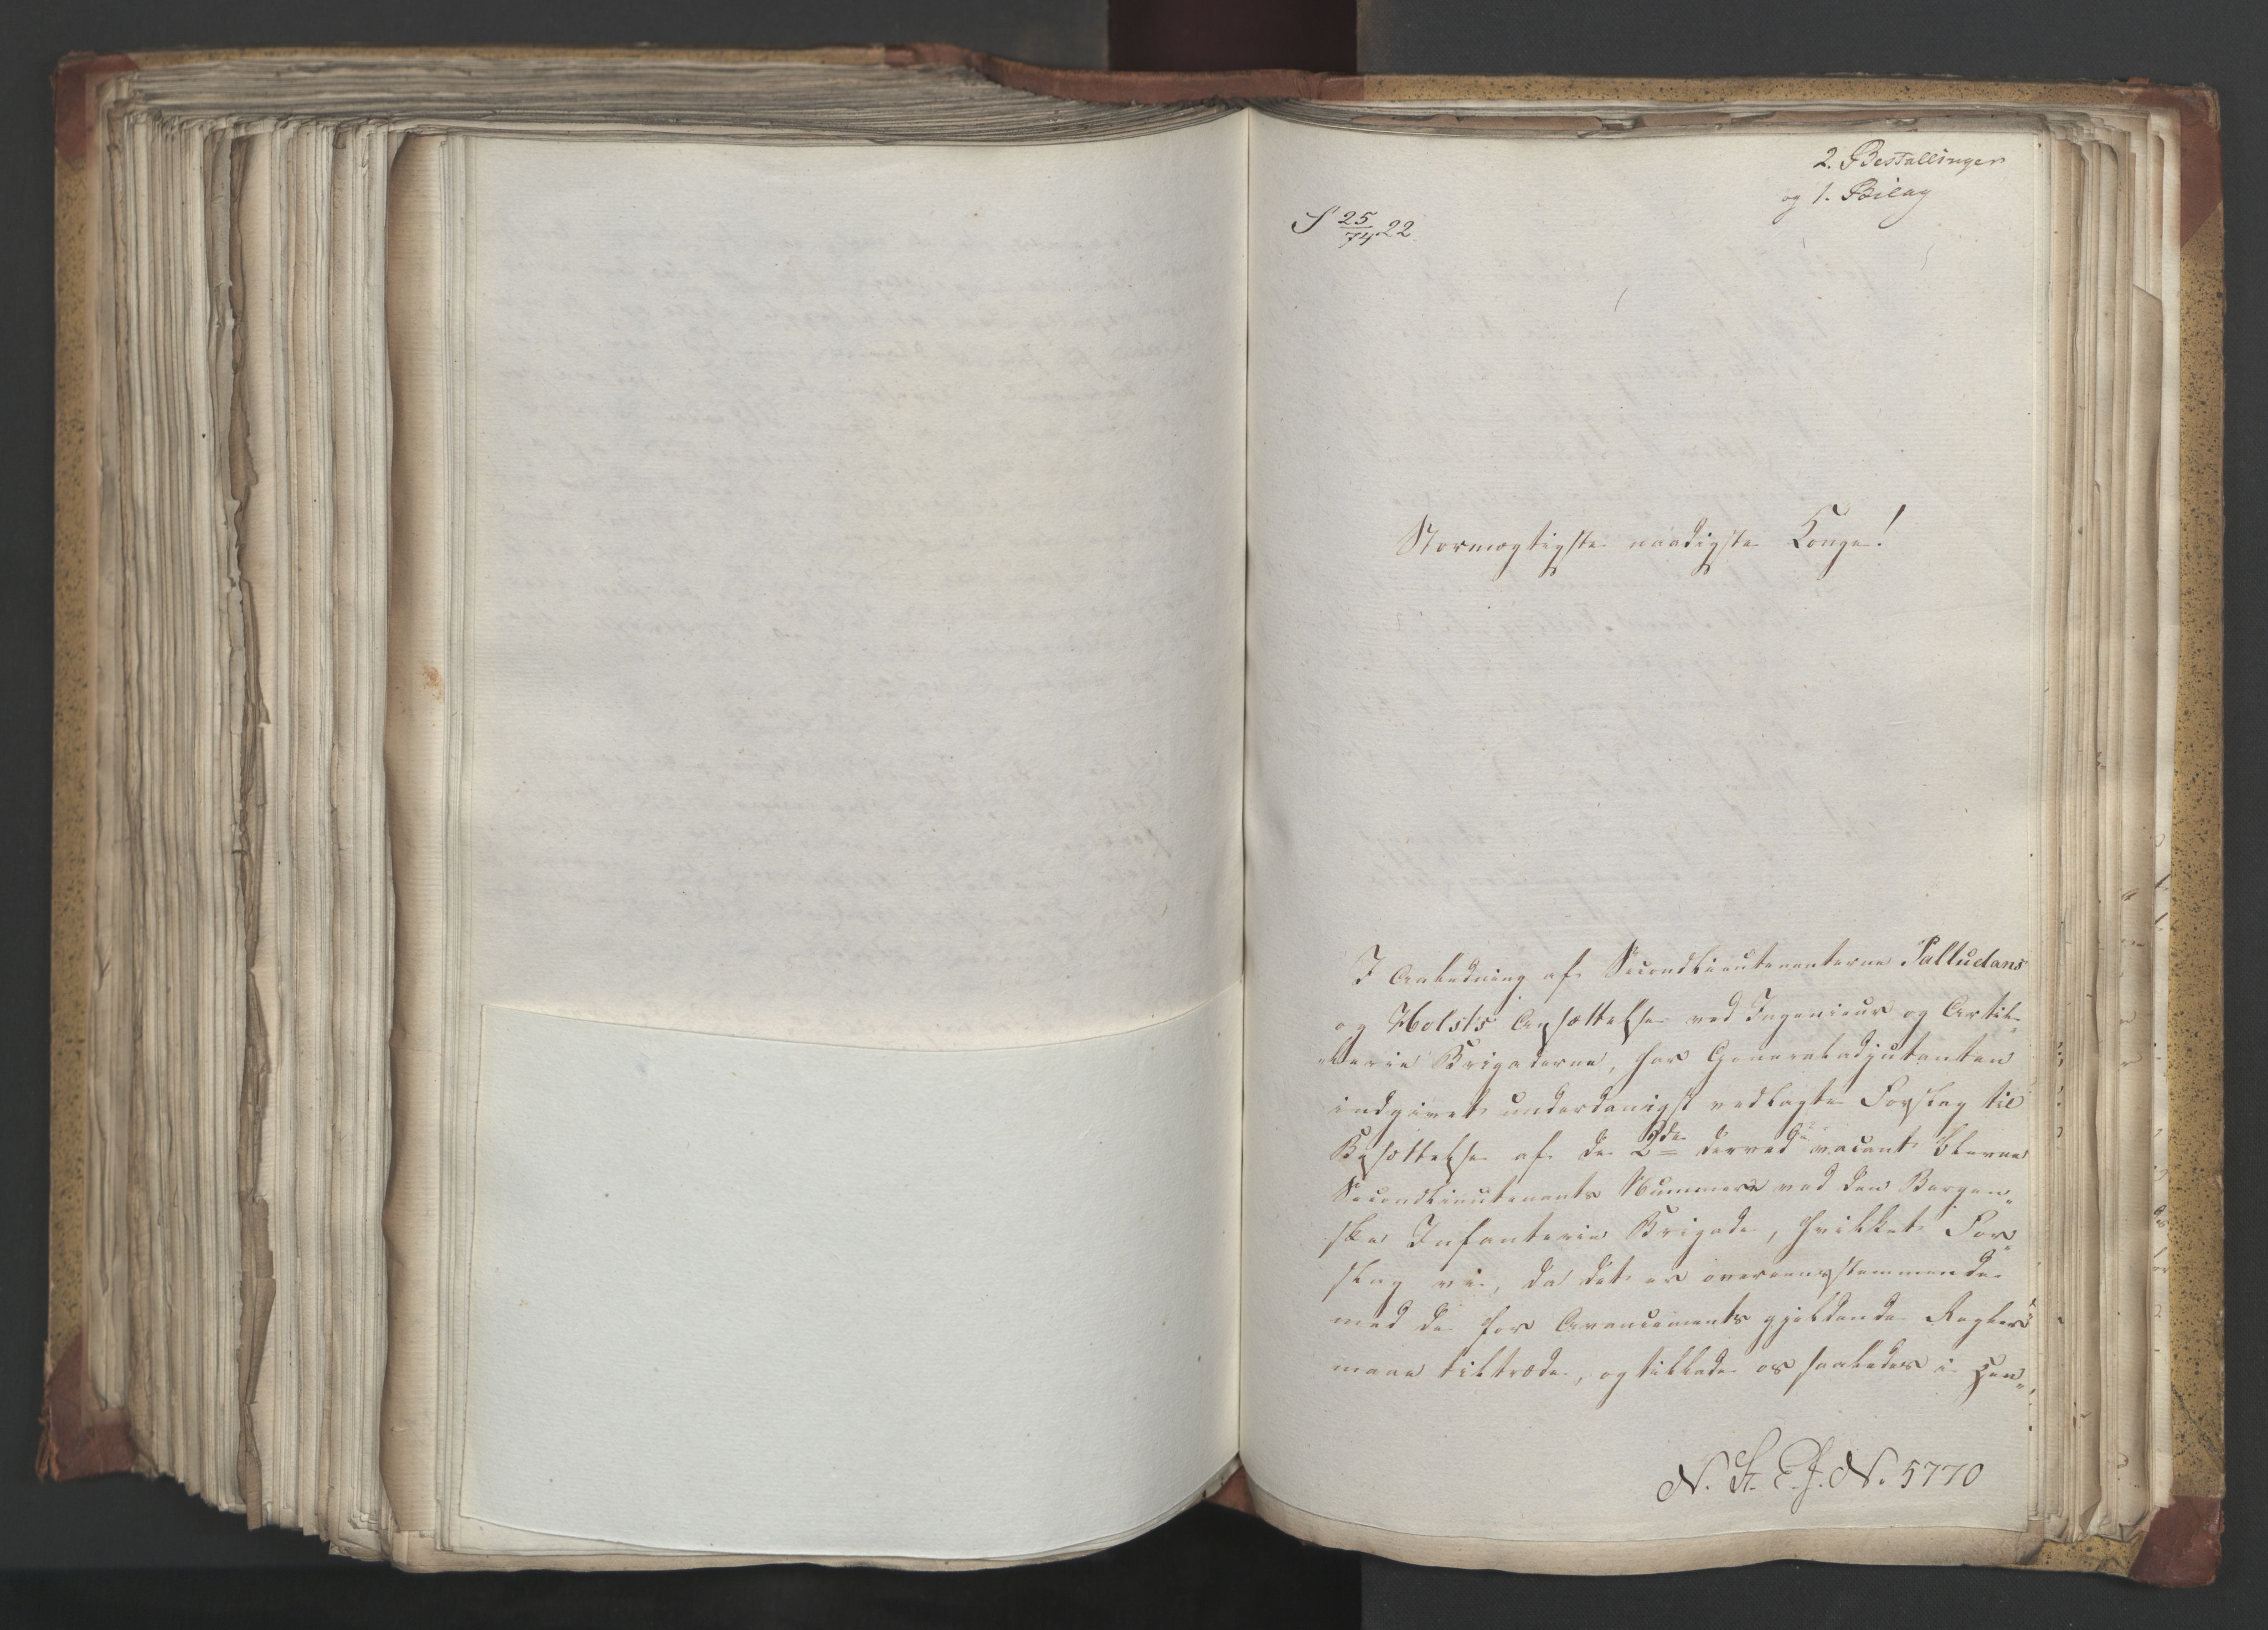 2. Bestallinger
og 1. Bilag
S 25/74 22
Stormægtigste naadigste Konge!
I Anledning af Secondlieutenanterne Palludans
og Holsts Ansættelse ved Ingenieur og Artil„
„lerie Brigaderne, har Generaladjutanten
indgivet underdanigst vedlagte Forslag til
Besættelse af de 2de derved vacant blevne
Secondlieutenants Nummere ved den Bergen„
ske Infanterie Brigade, hvilket For„
slag vi, da det er overeensstemmende
med de for Avancements gjeldende Regler
maae tiltræde, og tillade os saaledes i Hen„
N. St. E. J. N. 5770